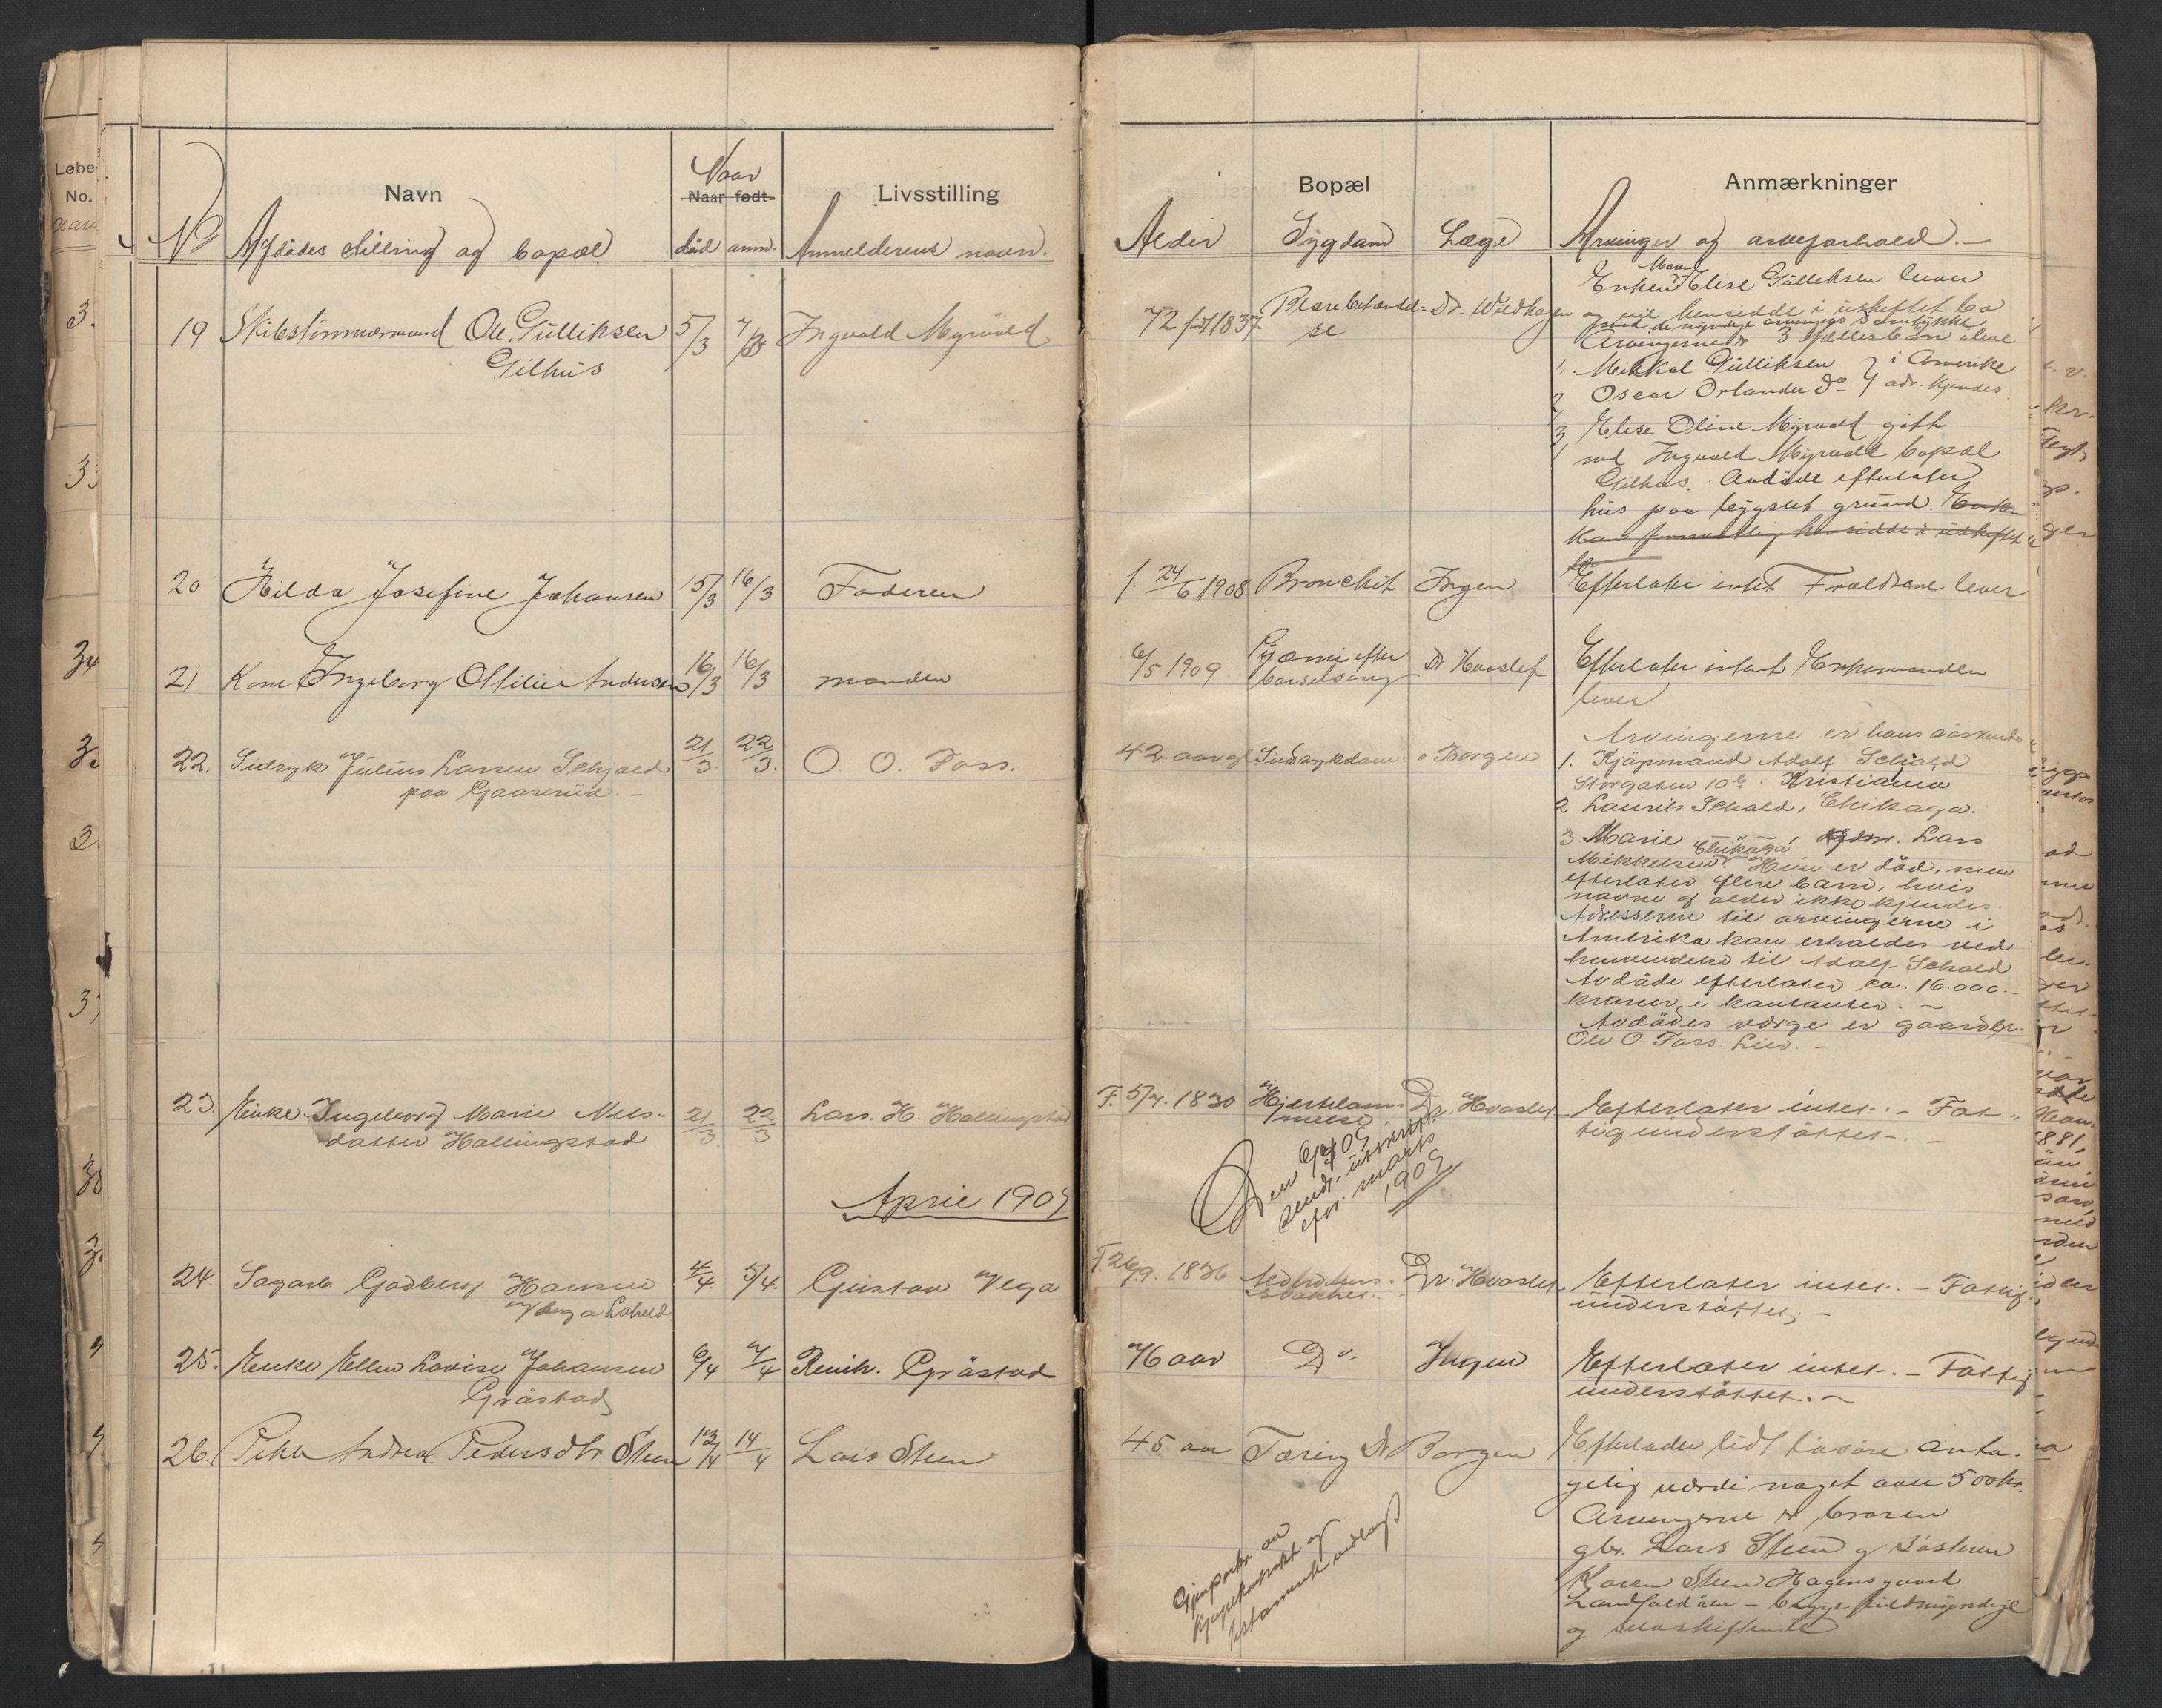 Løbe-
No.
Navn
Naar
Naar født
Livsstilling
No
Afdødes stilling og bopæl
død
anm.
Anmelderens navn.
19
Skibstømmermand Ole Gulliksen
5/3
7/3
Ingvald Myrvold
Gilhus
20
Hilda Josefine Johansen
15/3
16/3
Faderen
21
Kone Ingeborg Otilie Andersen
16/3
16/3
manden
22.
Sidsyk Julius Larsen Schjold
21/3.
22/3.
O. O. Foss.
paa Gaaserud. -
23.
Enke Ingeborg Marie Niels-
21/3.
22/3
Lars. H. Hallingstad
datter Hallingstad
April 1909
24.
Sagarb Godberg Hansen
4/4.
5/4.
Gustav Vega
Vega Lahell.
25.
Enke Ellen Lovise Johansen
6/4
7/4
Reinh. Gråstad
Gråstad
26.
Petra Andrea Pedersdtr Steen
13/4
14/4
Lars Steen
Bopæl
Anmærkninger
Alder
Sygdom
Læge
Arvinger og arveforhold. -
Enken Maren Elise Gulliksen lever
72 1837
Blærebetændel-
Dr. Wildhagen
og vil hensidde i uskiftet bo
se
med de myndige arvingers samtykke
Arvingerne er 3 fællesbørn
1. Mikkal Gulliksen } i Amerika
2 Oscar Orlander Do } adr. kjendes
3 Elise Oline Myrvold gift
med Ingvald Myrvold bopæl
Gilhus. Avdøde efterlater
hus paa bygslet grund. Enken
kan formentlig hensidde i uskiftet
bo
f. 24/6 1908
Bronchit
Ingen
Efterlater intet Forældrene lever
6/5 1909
Pyæmi efter
Dr Hvoslef
Efterlater intet Enkemanden
barselseng
lever
Arvingerne er hans søskende
42. aar gl
Sindssykdom
" Borgen
1. Kjøpmand Adolf Schjold
Storgaten 10 b. Kristiania
2 Laurits Schold, Chikago.
3. Marie Chikago Lars
Mikkelsen. Hun er död, men
efterlater flere barn, hvis
navne og alder ikke kjendes.
Adresserne til arvingerne i
Amerika kan erholdes ved
henvendelse til Adolf Schold
Avdöde efterlater ca. 16.000.-
kroner i kontanter. -
Avdödes verge er gaardbr.
Ole O. Foss. Lier. -
F. 5/7. 1830
Hjertelam-
Dr. Hvoslef
Efterlater intet. - Fat-
melse
tigunderstöttet. -
Den 6/4 09
sendt utskrift
for marts
1909
F. 26/9. 1836
Alderdoms-
Dr. Hvoslef.
Efterlater intet. - Fattig-
svakhet.
understöttet. -
76 aar
Do.
Ingen
Efterlater intet. - Fattig
understöttet. -
45 aar
Tæring
Dr Borgen
Efterlader lidt løsøre anta-
gelig værdi noget over 500 kr.
Arvingerne er broren
gbr. Lars Steen og søsteren
Karen Steen Hagensgaard
Landfaldøen - begge fuldmyndige
og selvskiftende
Gjenpart av
kjøpekontrakt og
testamente vedlagt